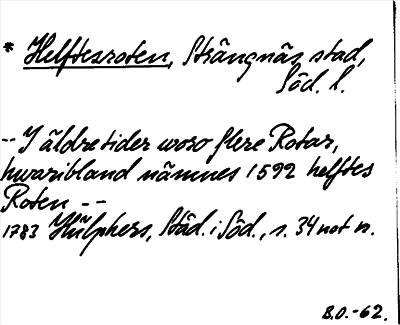 * Helftesroten, Strängnäs stad,
Söd. l.
-- I äldre tider woro flere Rotar,
hwaribland nämnes 1592 helftes
Roten --
1783 Hülphers, Städ. i Söd., s. 34 not n.
B.O.-62.